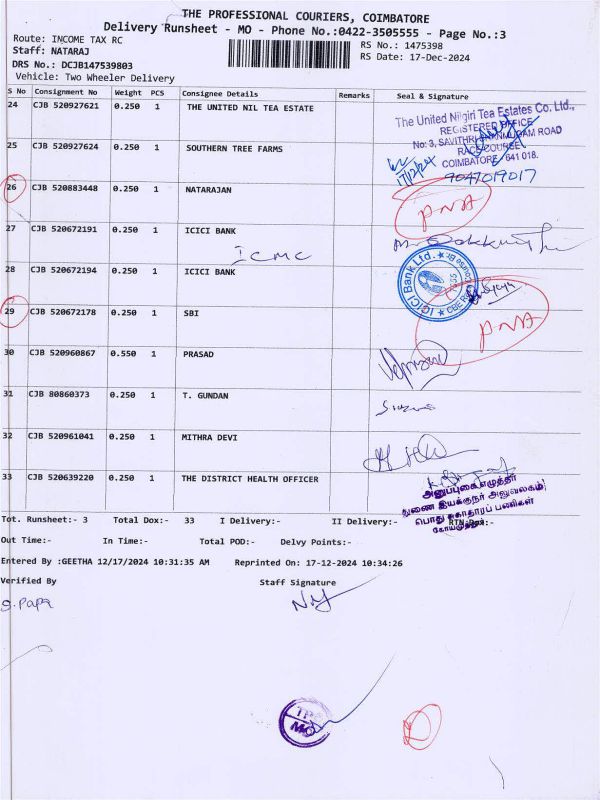 THE PROFESSIONAL COURIERS, COIMBATORE
Delivery Runsheet - MO - Phone No.:0422-3505555 - Page No.:3
Route: INCOME TAX RC
RS No.: 1475398
Staff: NATARAJ
RS Date: 17-Dec-2024
DRS No.: DCJB147539803
Vehicle: Two Wheeler Delivery
S No Consignment No Weight PCS Consignee Details Remarks Seal & Signature
24 CJB 520927621 0.250 1 THE UNITED NIL TEA ESTATE
The United Nilgiri Tea Estates Co. Ltd.,
REGISTERED OFFICE
No: 3, SAVITHRI SHANMUGAM ROAD
RACE COURSE
COIMBATORE - 641 018.
25 CJB 520927624 0.250 1 SOUTHERN TREE FARMS
17/12/24
9047019017
26 CJB 520883448 0.250 1 NATARAJAN
PNA
27 CJB 520672191 0.250 1 ICICI BANK
ICMC
28 CJB 520672194 0.250 1 ICICI BANK
ICICI Bank Ltd.
29 CJB 520672178 0.250 1 SBI
PNA
30 CJB 520960867 0.550 1 PRASAD
31 CJB 80860373 0.250 1 T. GUNDAN
32 CJB 520961041 0.250 1 MITHRA DEVI
33 CJB 520639220 0.250 1 THE DISTRICT HEALTH OFFICER
அனுப்புகை எழுத்தர்
துணை இயக்குநர் அலுவலகம்
பொது சுகாதாரப் பணிகள்
கோயமுத்தூர்
Tot. Runsheet:- 3 Total Dox:- 33 I Delivery:- II Delivery:- RTN Dox:-
Out Time:- In Time:- Total POD:- Delvy Points:-
Entered By :GEETHA 12/17/2024 10:31:35 AM Reprinted On: 17-12-2024 10:34:26
Verified By Staff Signature
S. Papa
TPC
MO